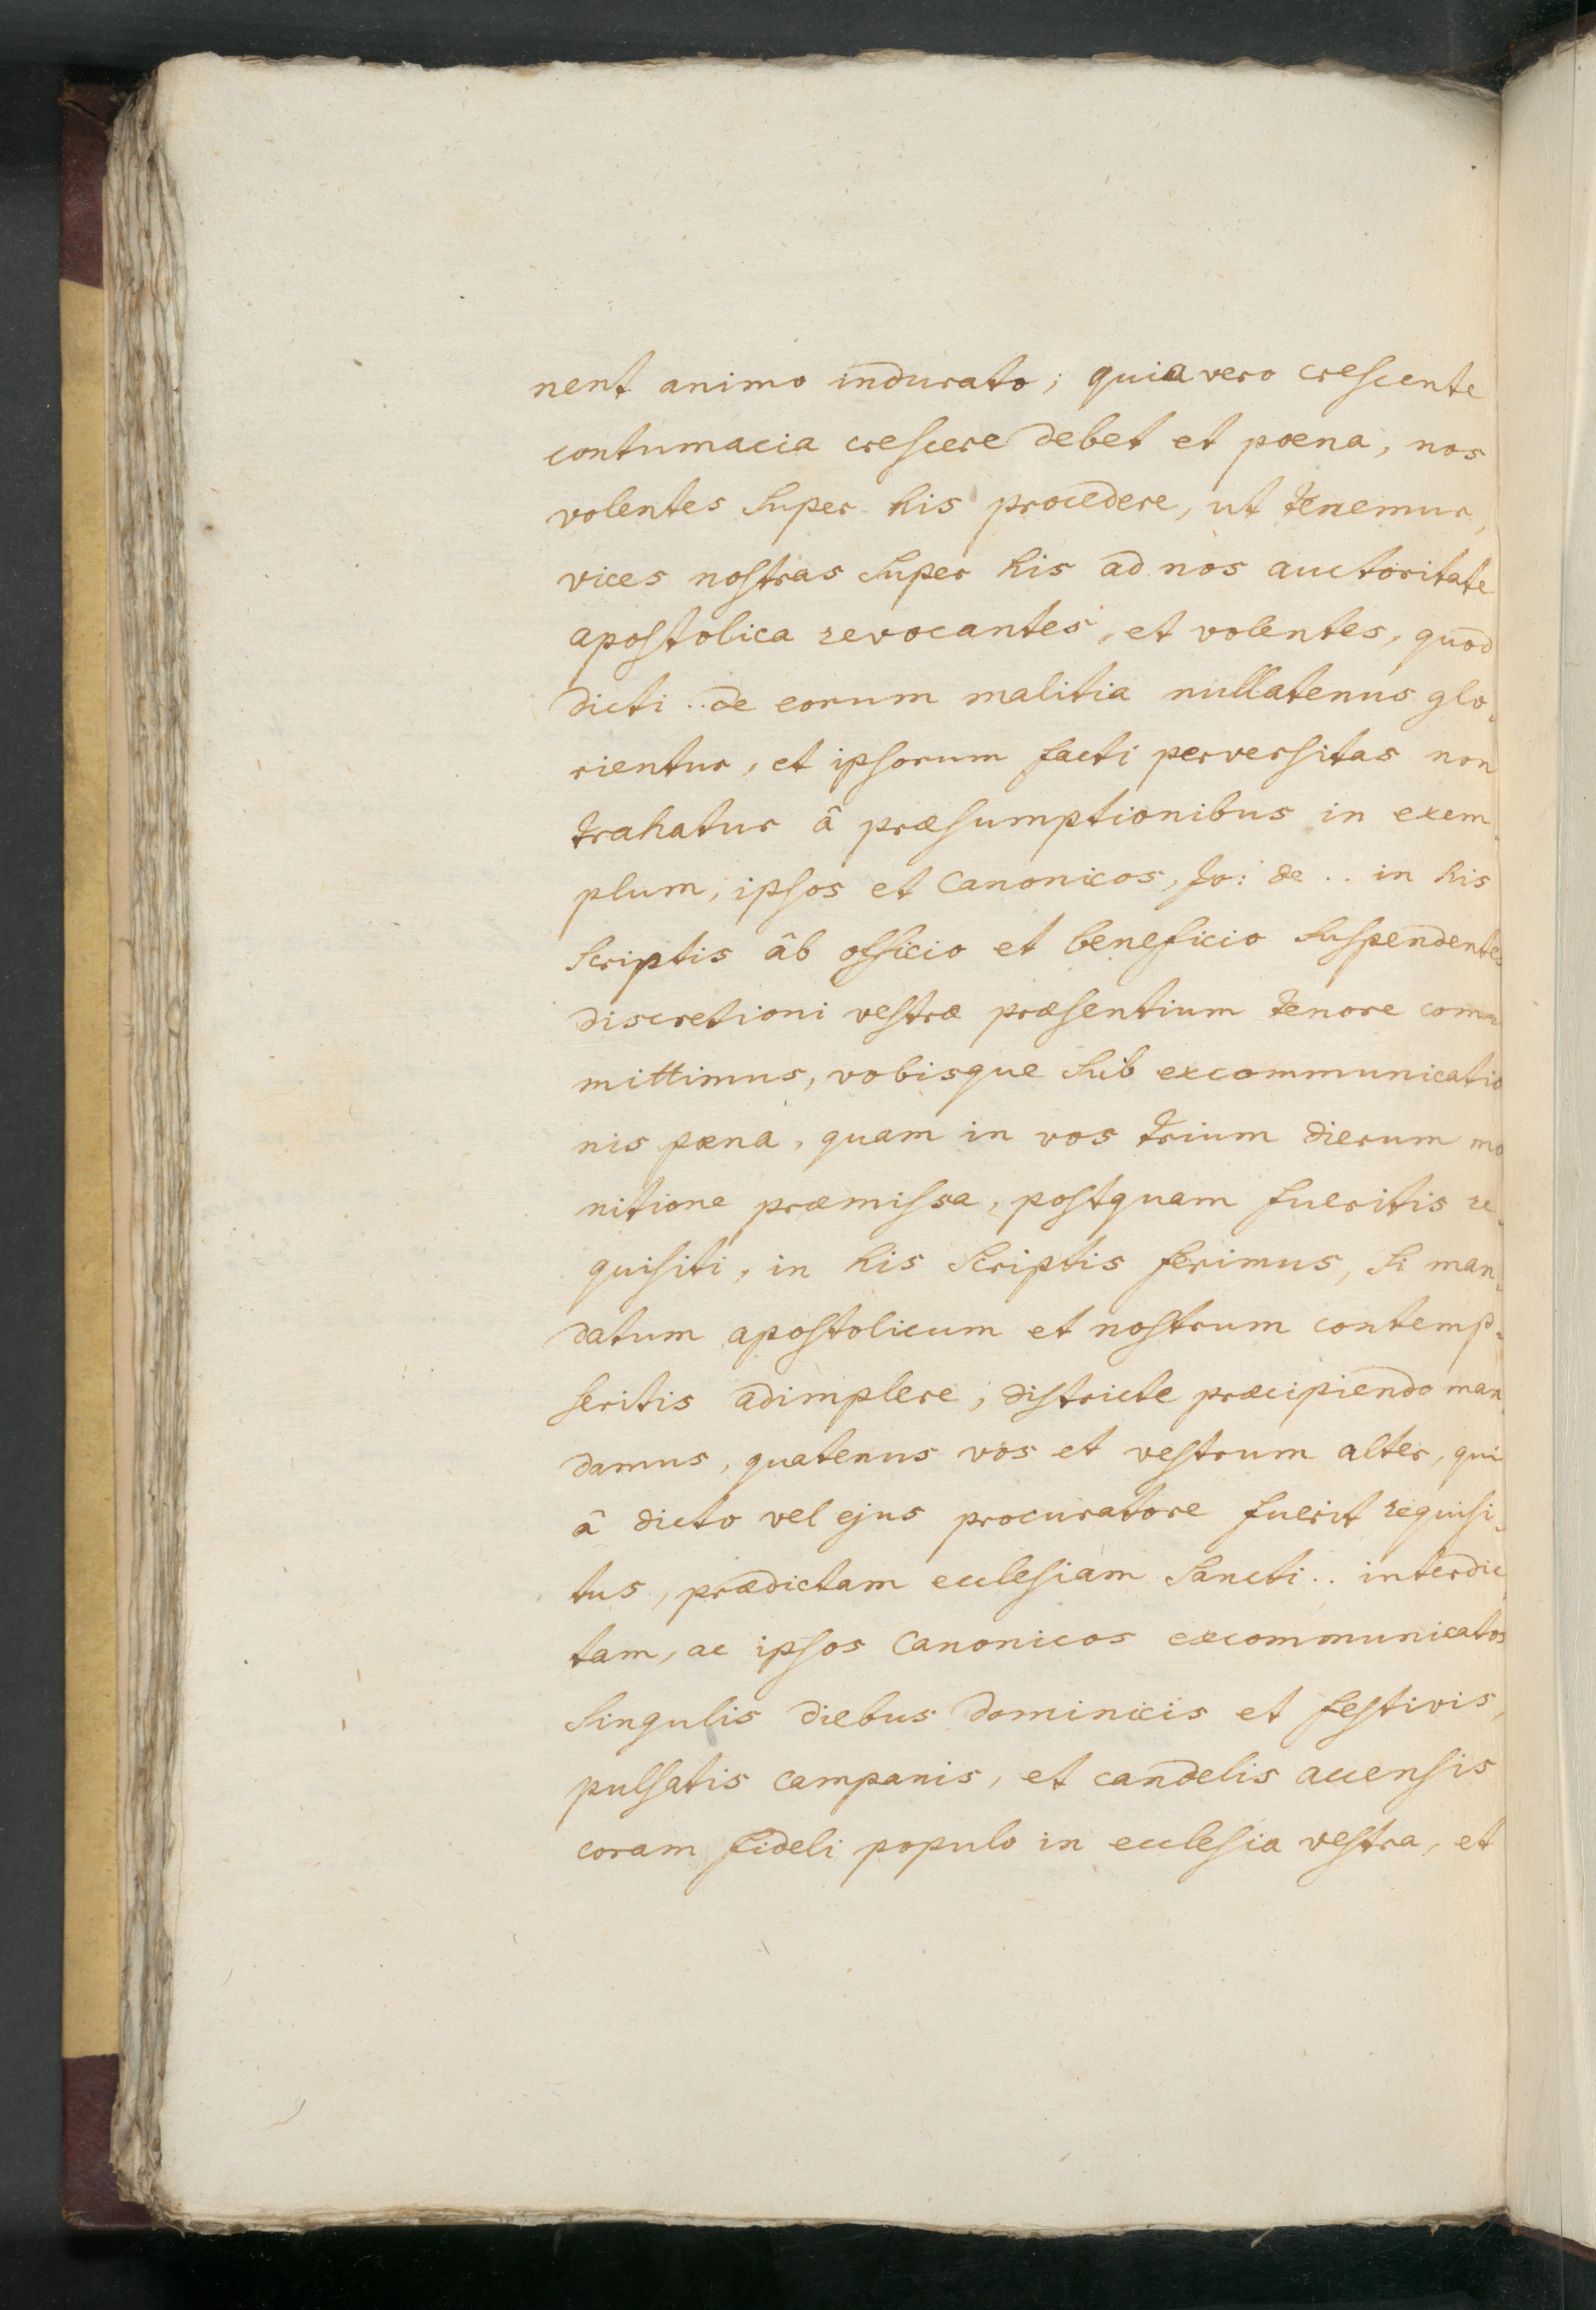 nent animo indurato; quia vero crescente
contumacia crescere debet et poena, nos
volentes super his procedere, ut tenemur,
vices nostras super his ad nos auctoritate
apostolica revocantes, et volentes, quod
dicti .. de eorum malitia nullatenus glo-
rientur, et ipsorum facti perversitas non
trahatur â præsumptionibus in exem-
plum, ipsos et Canonicos, Jo: de .. in his
scriptis âb officio et beneficio suspendentes
discretioni vestræ præsentium tenore com-
mittimus, vobisque sub excommunicatio
nis pœna, quam in vos trium dierum mo
nitione præmissa, postquam fueritis re-
quisiti, in his scriptis ferimus, si man-
datum apostolicum et nostrum contemp-
seritis adimplere, districte præcipiendo man
damus, quatenus vos et vestrum alter, qui
â dicto vel ejus procuratore fuerit requisi-
tus, prædictam ecclesiam Sancti .. interdic
tam, ac ipsos Canonicos excommunicatos
singulis diebus Dominicis et festivis,
pulsatis campanis, et candelis accensis
coram fideli populo in ecclesia vestra, et